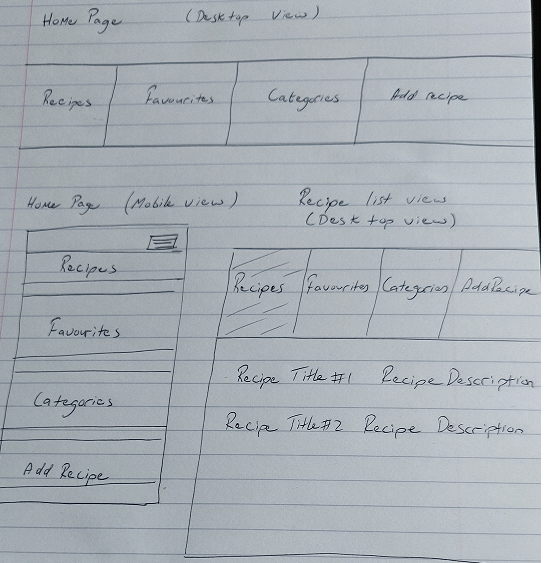 Home Page (Desktop View)
Recipes Favourites Categories Add recipe
Home Page (Mobile view)
Recipes
Favourites
Categories
Add Recipe
Recipe list view
(Desktop view)
Recipes Favourites Categories Add Recipe
Recipe Title #1 Recipe Description
Recipe Title #2 Recipe Description